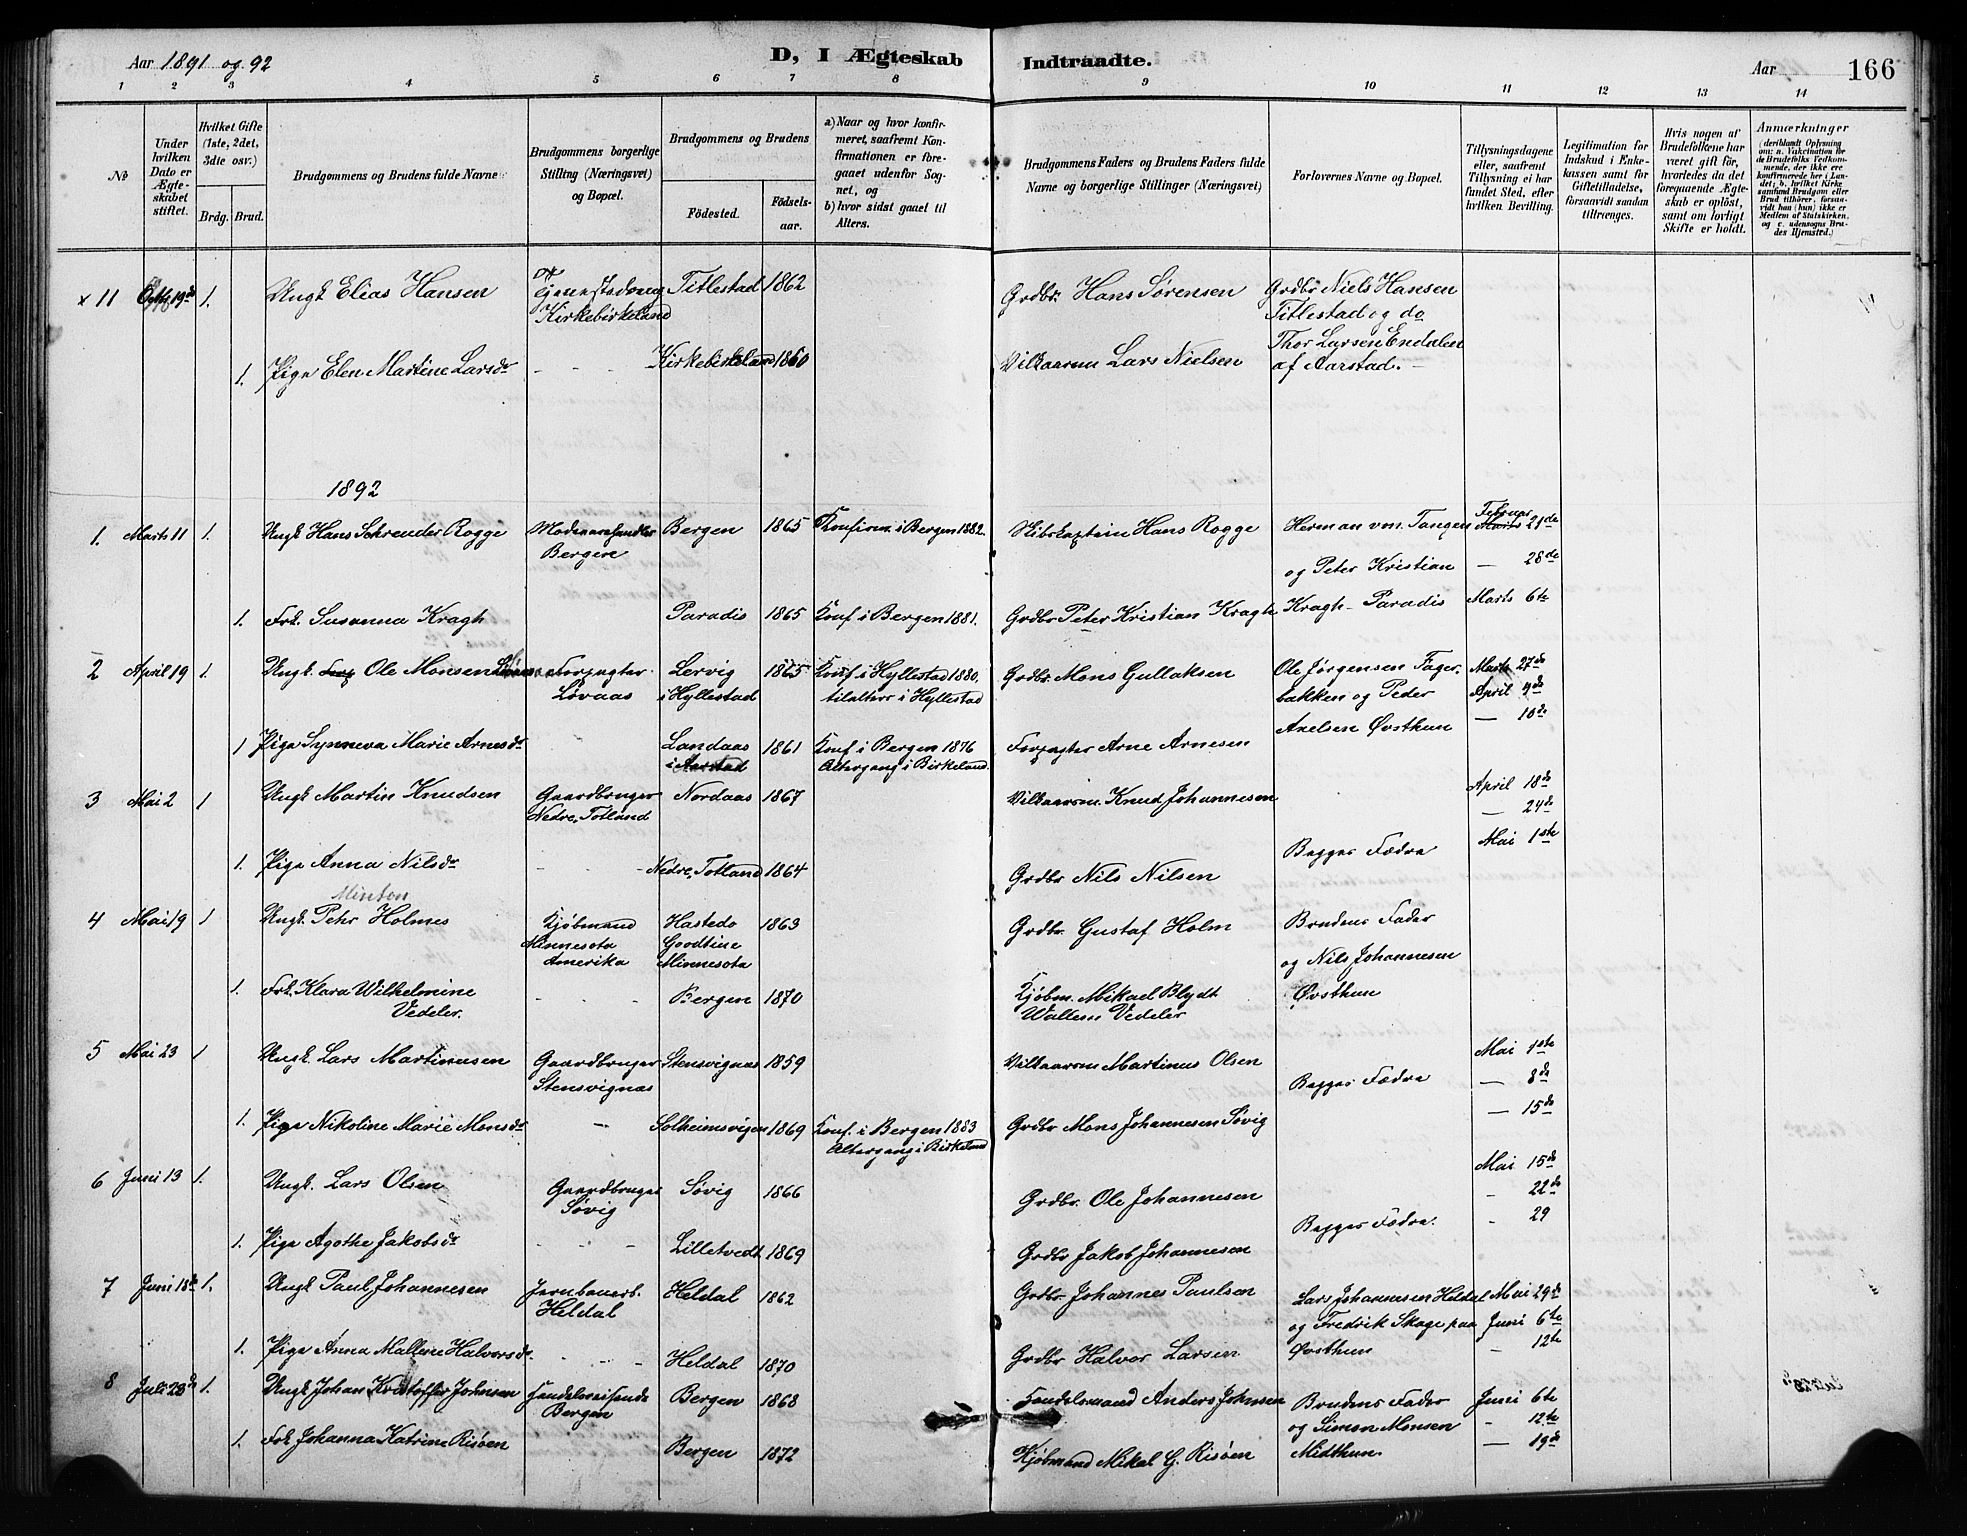 Aar 1891 og 92
D, I Ægteskab Indtraadte.
Aar
166
1 2 3 4 5 6 7 8 9 10 11 12 13 14
No
Under hvilken Dato er Ægteskabet stiftet.
Hvilket Gifte (1ste, 2det, 3die osv.)
Brdg. Brud.
Brudgommens og Brudens fulde Navne
Brudgommens borgerlige Stilling (Næringsvei) og Bopæl.
Brudgommens og Brudens
Fødested.
Fødselsaar.
a) Naar og hvor konfirmeret, saafremt Konfirmationen er foregaaet udenfor Sognet, og
b) hvor sidst gaaet til Alters.
Brudgommens Faders og Brudens Faders fulde Navne og borgerlige Stillinger (Næringsvei)
Forlovernes Navne og Bopæl.
Tillysningsdagene eller, saafremt Tillysning ei har fundet Sted, efter hvilken Bevilling.
Legitimation for Indskud i Enkekassen samt for Giftetilladelse, forsaavidt saadan tiltrænges.
Hvis nogen af Brudefolkene har været gift før, hvorledes da det foregaaende Ægteskab er opløst, samt om lovligt Skifte er holdt.
Anmærkninger (deriblandt Oplysning om: a. Vakcination for de Brudefolks Vedkommende, der ikke ere konfirmerede her i Landet; b. hvilket Kirkesamfund Brudgom eller Brud tilhører, forsaavidt han (hun) ikke er Medlem af Statskirken, og c. udensogns Brudes Hjemsted.)
x 11 Octb 19de 1. Ungk Elias Hansen
Kirkebirkeland
Titlestad 1862
Grdbr. Hans Sørensen
Grdbr Niels Hansen
Titlestad og do
Thor Larsen Endalen
af Aarstad.
1. Pige Elen Martine Larsdr
Kirkebirkeland 1860
Vilkaarsm Lars Nielsen
1892
1. Marts 11 1. Ungk Hans Schreuder Rogge
Modevarehandler
Bergen
Bergen 1865 Konfirm. i Bergen 1882.
Skibskaptein Hans Rogge
Herman vm. Tangen
og Peter Kristian
Kragh - Paradis
Februar
Marts 21de
— 28de
Marts 6te
1. Frk. Susanna Kragh
Paradis 1865 Konf. i Bergen 1881.
Grdbr Peter Kristian Kragh
2 April 19 1. Ungk. Ole Monsen
Forpagter
Løvaas
Lervig
i Hyllestad
1865 Konf i Hyllestad 1880.
tilalters i Hyllestad
Grdbr Mons Gullaksen
Ole Jørgensen Fager-
bakken og Peder
Axelsen Øvsthun
Marts 27de
April 4de
— 10de
1 Pige Synneva Marie Arnesdr
Landaas
i Aarstad
1861 Konf i Bergen 1876
Altergang i Birkeland.
Forpagter Arne Arnesen
3 Mai 2 1 Ungk Martin Knudsen
Gaardbruger
Nedre, Totland
Nordaas 1867
Vilkaarsm. Knud Johannesen
Begges Fædre
April 18de
— 24de
Mai 1ste
1. Pige Anna Nilsdr
Nedre, Totland 1864
Grdbr Nils Nilsen
Minton
4 Mai 19 1 Ungk. Petr Holmes
Kjøbmand
Minnesota
Amerika
Hastedo
Goodtine
Minnesota
1863
Grdbr. Gustaf Holm
Brudens Fader
og Nils Johannesen
Øvsthun
1. Frk. Klara Wilhelmine
Vedeler.
Bergen 1870
Kjøbm. Mikael Blydt
Wallem Vedeler
5 Mai 23 1 Ungk. Lars Martinusen
Gaardbruger
Stensvignæs
Stensvignæs 1859
Vilkaarsm Martinus Olsen
Begges Fædre
Mai 1ste
— 8de
— 15de
1. Pige Nikoline Marie Monsdr
Solheimsvigen 1869 Konf. i Bergen 1883
Altergang i Birkeland
Grdbr Mons Johannesen Søvig
6 Juni 13 1. Ungk. Lars Olsen
Gaardbruger
Søvig
Søvig 1866
Grdbr. Ole Johannesen
Begges Fædre.
Mai 15de
- 22de
- 29
1. Pige Agothe Jakobsdr
Lilletvedt 1869
Grdbr Jakob Johannesen
7 Juni 18de 1. Ungk Paul Johannesen
Heldal
Heldal 1862
Grdbr Johannes Paulsen
Lars Johannesen Heldal
og Fredrik Skage paa
Øvsthun
Mai 29de
Juni 6te
- 12te
1. Pige Anna Mallene Halvorsdr
Heldal 1870
Grdbr Halvor Larsen
8 Juli 28de 1. Ungk Johan Kristoffer Johnsen
Handelsreisende
Bergen
Bergen 1868
Handelsmand Anders Johnsen
Brudens Fader
og Simon Monsen
Midthun.
Juni 6te
- 12te
— 19de
1. Frk Johanna Katrine Risøen
Bergen 1872
Kjøbmand Mikal G. Risøen